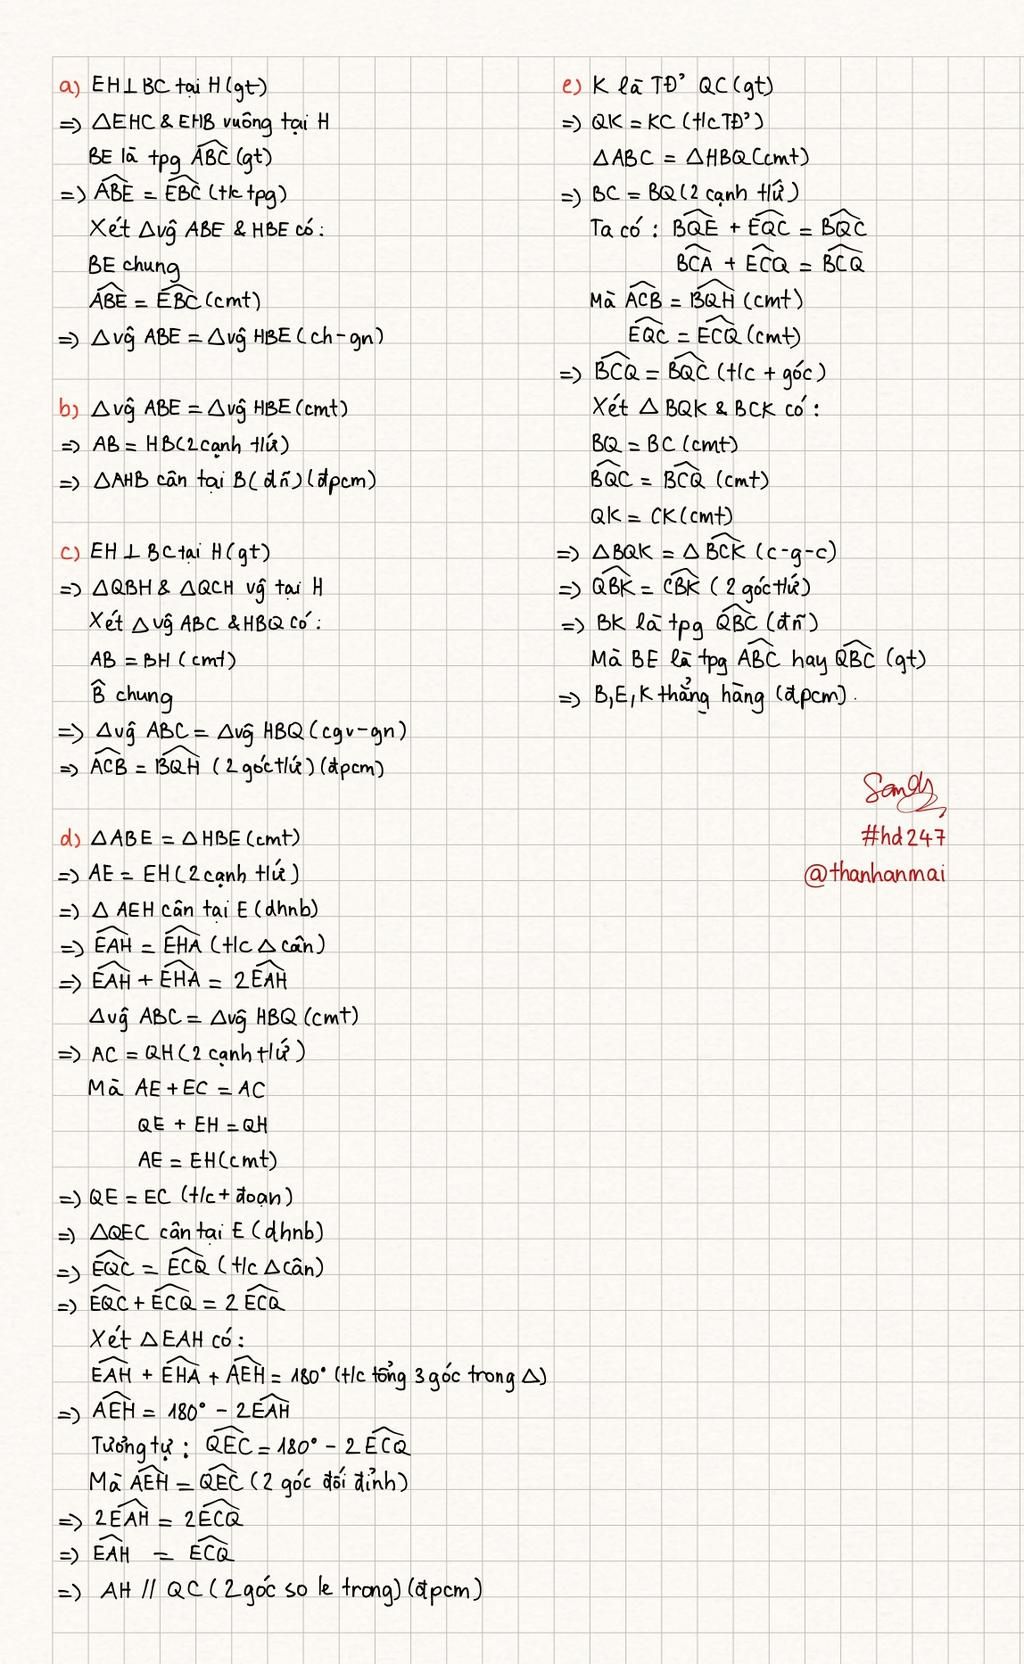 a) EH⊥BC tại H(gt)
=> ΔEHC & EHB vuông tại H
BE là tpg ABC (gt)
=> ABE = EBC (t/c tpg)
Xét Δvg ABE & HBE có:
BE chung
ABE = EBC (cmt)
=> Δvg ABE = Δvg HBE (ch-gn)
b) Δvg ABE = Δvg HBE (cmt)
=> AB = HB (2 cạnh t/ứ)
=> ΔAHB cân tại B (đn) (đpcm)
c) EH ⊥ BC tại H (gt)
=> ΔQBH & ΔQCH vg tại H
Xét Δvg ABC & HBQ có:
AB = BH (cmt)
B̂ chung
=> Δvg ABC = Δvg HBQ (cgv-gn)
=> ACB = BQH (2 góc t/ứ) (đpcm)
d) ΔABE = ΔHBE (cmt)
=> AE = EH (2 cạnh t/ứ)
=> Δ AEH cân tại E (dhnb)
=> EAH = EHA (t/c Δ cân)
=> EAH + EHA = 2EAH
Δvg ABC = Δvg HBQ (cmt)
=> AC = QH (2 cạnh t/ứ)
Mà AE + EC = AC
QE + EH = QH
AE = EH (cmt)
=> QE = EC (t/c + đoạn)
=> ΔQEC cân tại E (dhnb)
=> EQC = ECQ (t/c Δ cân)
=> EQC + ECQ = 2 ECQ
Xét ΔEAH có:
EAH + EHA + AEH = 180° (t/c tổng 3 góc trong Δ)
=> AEH = 180° - 2EAH
Tương tự: QEC = 180° - 2 ECQ
Mà AEH = QEC (2 góc đối đỉnh)
=> 2EAH = 2ECQ
=> EAH = ECQ
=> AH // QC (2 góc so le trong) (đpcm)
e) K là TĐ' QC (gt)
=> QK = KC (t/c TĐ')
ΔABC = ΔHBQ (cmt)
=> BC = BQ (2 cạnh t/ứ)
Ta có: BQE + EQC = BQC
BCA + ECQ = BCQ
Mà ACB = BQH (cmt)
EQC = ECQ (cmt)
=> BCQ = BQC (t/c + góc)
Xét Δ BQK & BCK có:
BQ = BC (cmt)
BQC = BCQ (cmt)
QK = CK (cmt)
=> ΔBQK = Δ BCK (c-g-c)
=> QBK = CBK (2 góc t/ứ)
=> BK là tpg QBC (đn)
Mà BE là tpg ABC hay QBC (gt)
=> B, E, K thẳng hàng (đpcm).
Sandy
#hd247
@thanhanmai